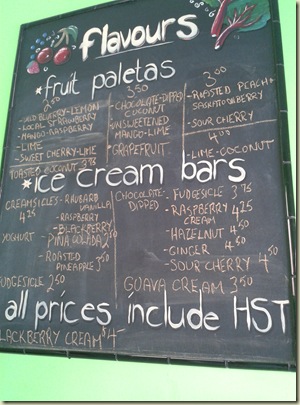 flavours
*fruit paletas
2.50
- WILD BLUEBERRY-LEMON
- LOCAL STRAWBERRY
- MANGO-RASPBERRY
- LIME
- SWEET CHERRY-LIME
TOASTED COCONUT 3.75
3.50
- CHOCOLATE-DIPPED
COCONUT
- UNSWEETENED
MANGO-LIME
*GRAPEFRUIT
3.00
- ROASTED PEACH+
SASKATOON BERRY
- SOUR CHERRY
4.00
- LIME-COCONUT
*ice cream bars
CREAMSICLES - RHUBARB
VANILLA
4.25
- RASPBERRY
- BLACKBERRY
YOGHURT - PINA COLADA 2.50
- ROASTED
PINEAPPLE 3.50
FUDGESICLE 2.50
CHOCOLATE-
DIPPED
- FUDGESICLE 3.75
- RASPBERRY 4.25
CREAM
- HAZELNUT 4.50
- GINGER 4.50
- SOUR CHERRY 4.50
GUAVA CREAM 3.50
all prices include HST
BLACKBERRY CREAM $4-